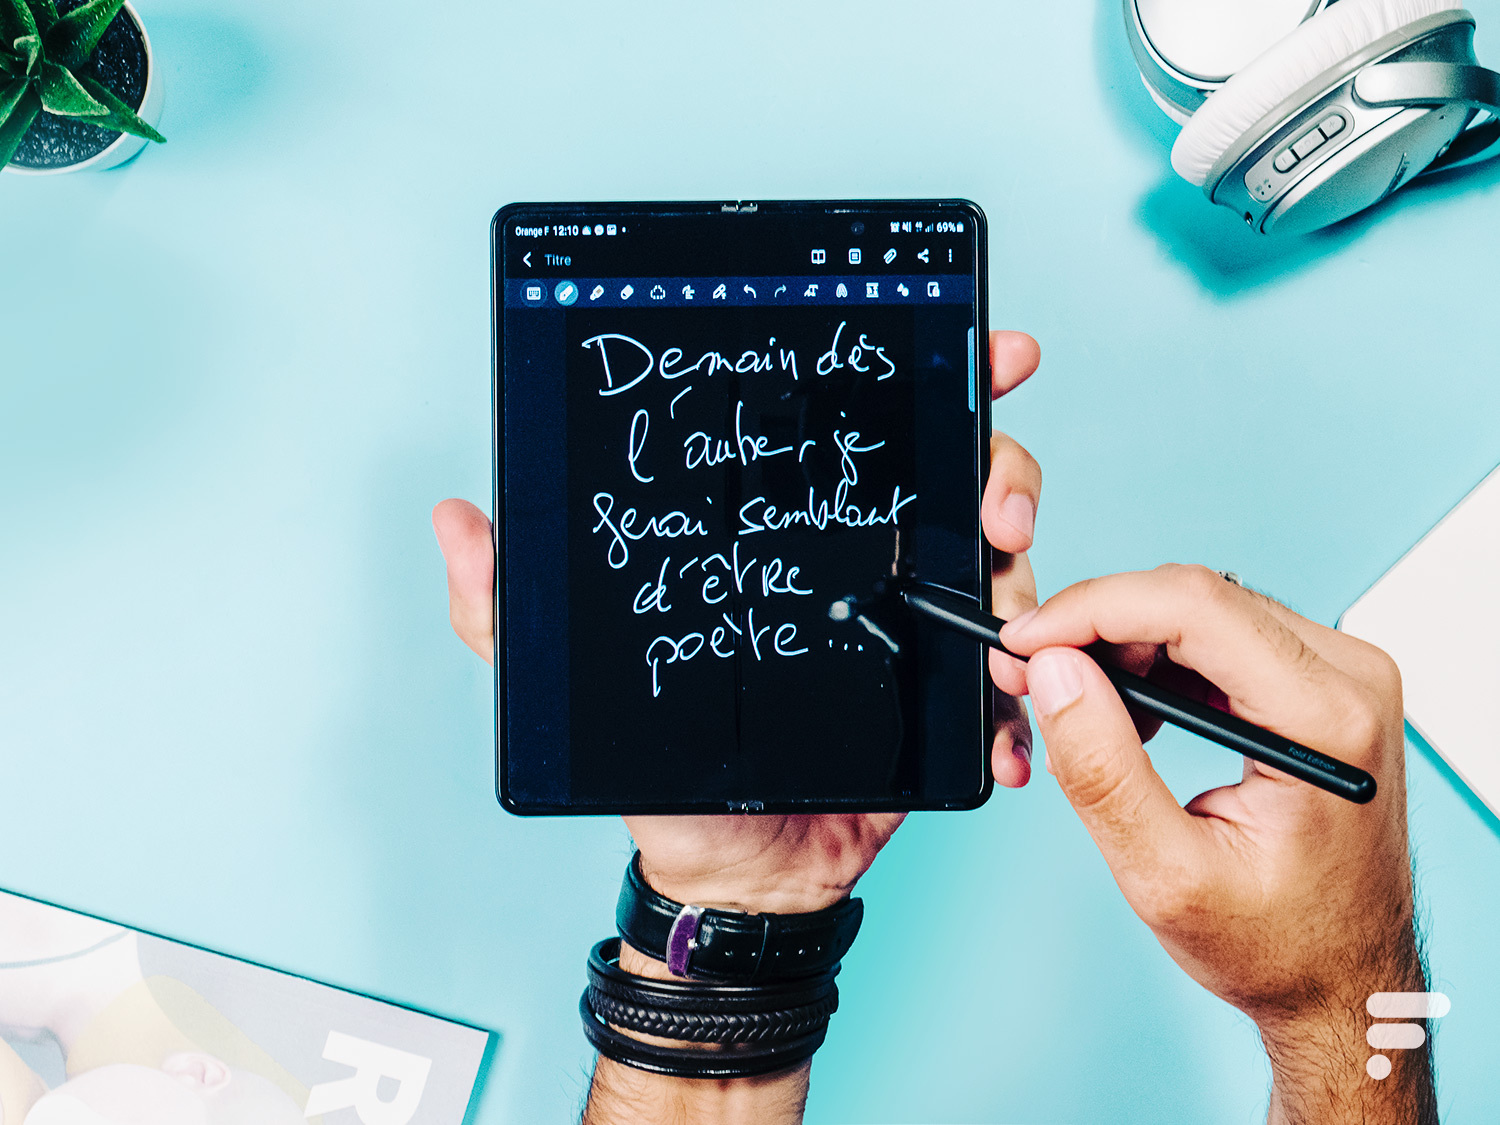 Orange F 12:10
69%
Titre
Demain dès
l'aube, je
ferai semblant
d'être
poète...
Fold Edition
R